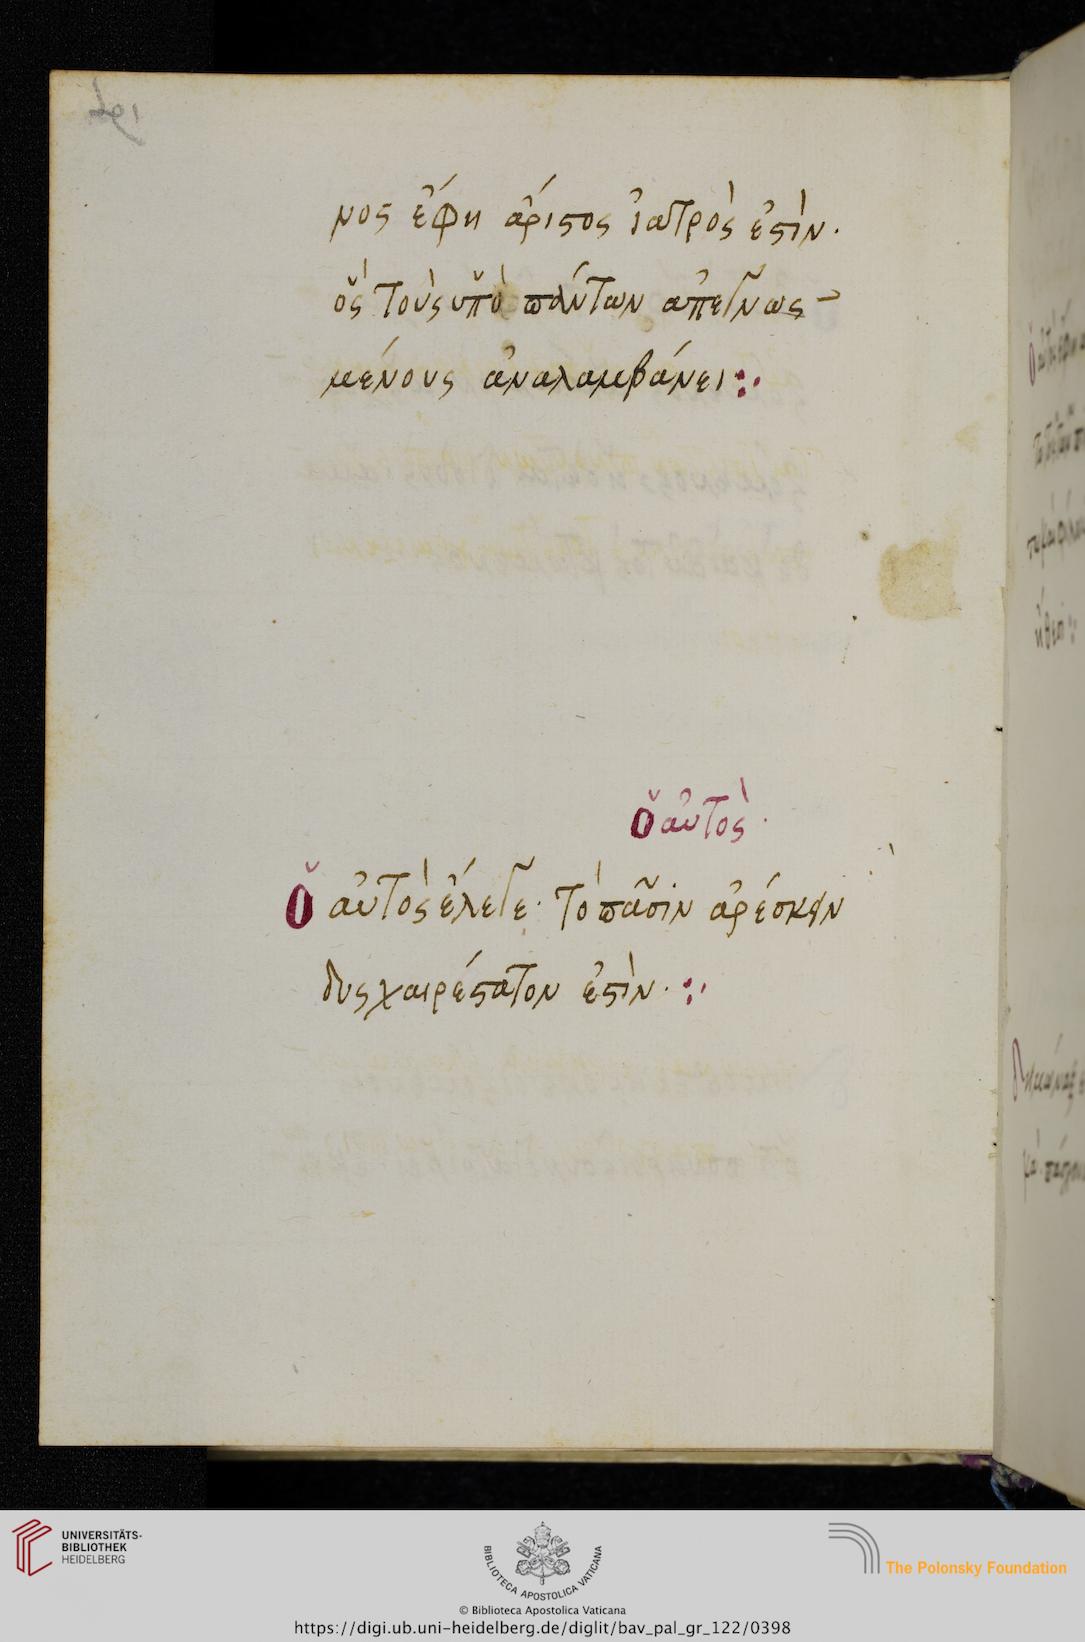 νος ἔφη ἄριστος ἰατρὸς ἐστὶν·
ὃς τοὺς ὑπὸ πάντων ἀπεγνωσ-
μένους ἀναλαμβάνει :·
ὁ αὐτὸς·
ὁ αὐτὸς ἔλεγε· τὸ πᾶσιν ἀρέσκειν
δυσχαιρέστατον ἐστὶν· :·
UNIVERSITÄTS-
BIBLIOTHEK
HEIDELBERG
BIBLIOTECA APOSTOLICA VATICANA
The Polonsky Foundation
© Biblioteca Apostolica Vaticana
https://digi.ub.uni-heidelberg.de/diglit/bav_pal_gr_122/0398